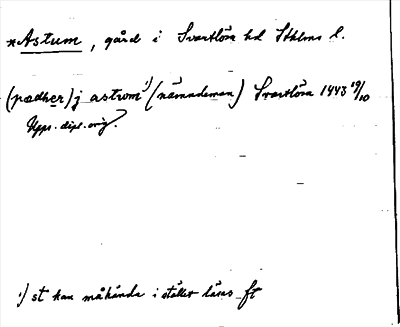 *Astum, gård i Svartlösa hd Sthlms l.
(pædher) j astrom ¹) (nämndeman) Svartlösa 1443 19/10
Upps. dipl. orig?
¹) st kan måhända i stället läsas ft